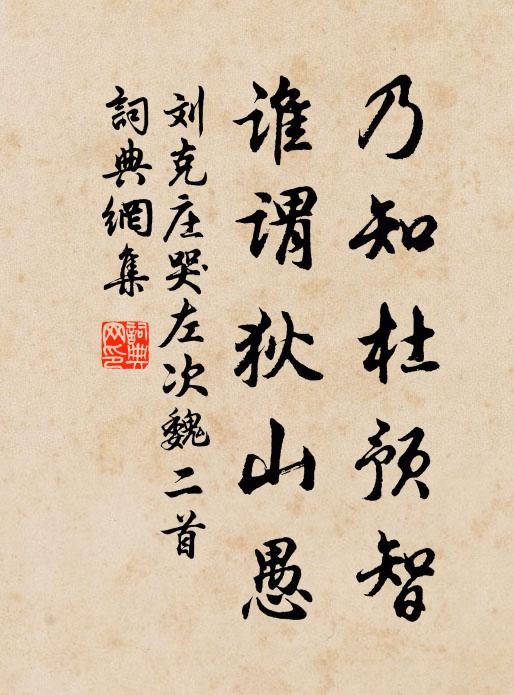 乃知杜预智
谁谓狄山愚
刘克庄哭左次魏二首
詞典網集
詞典网印